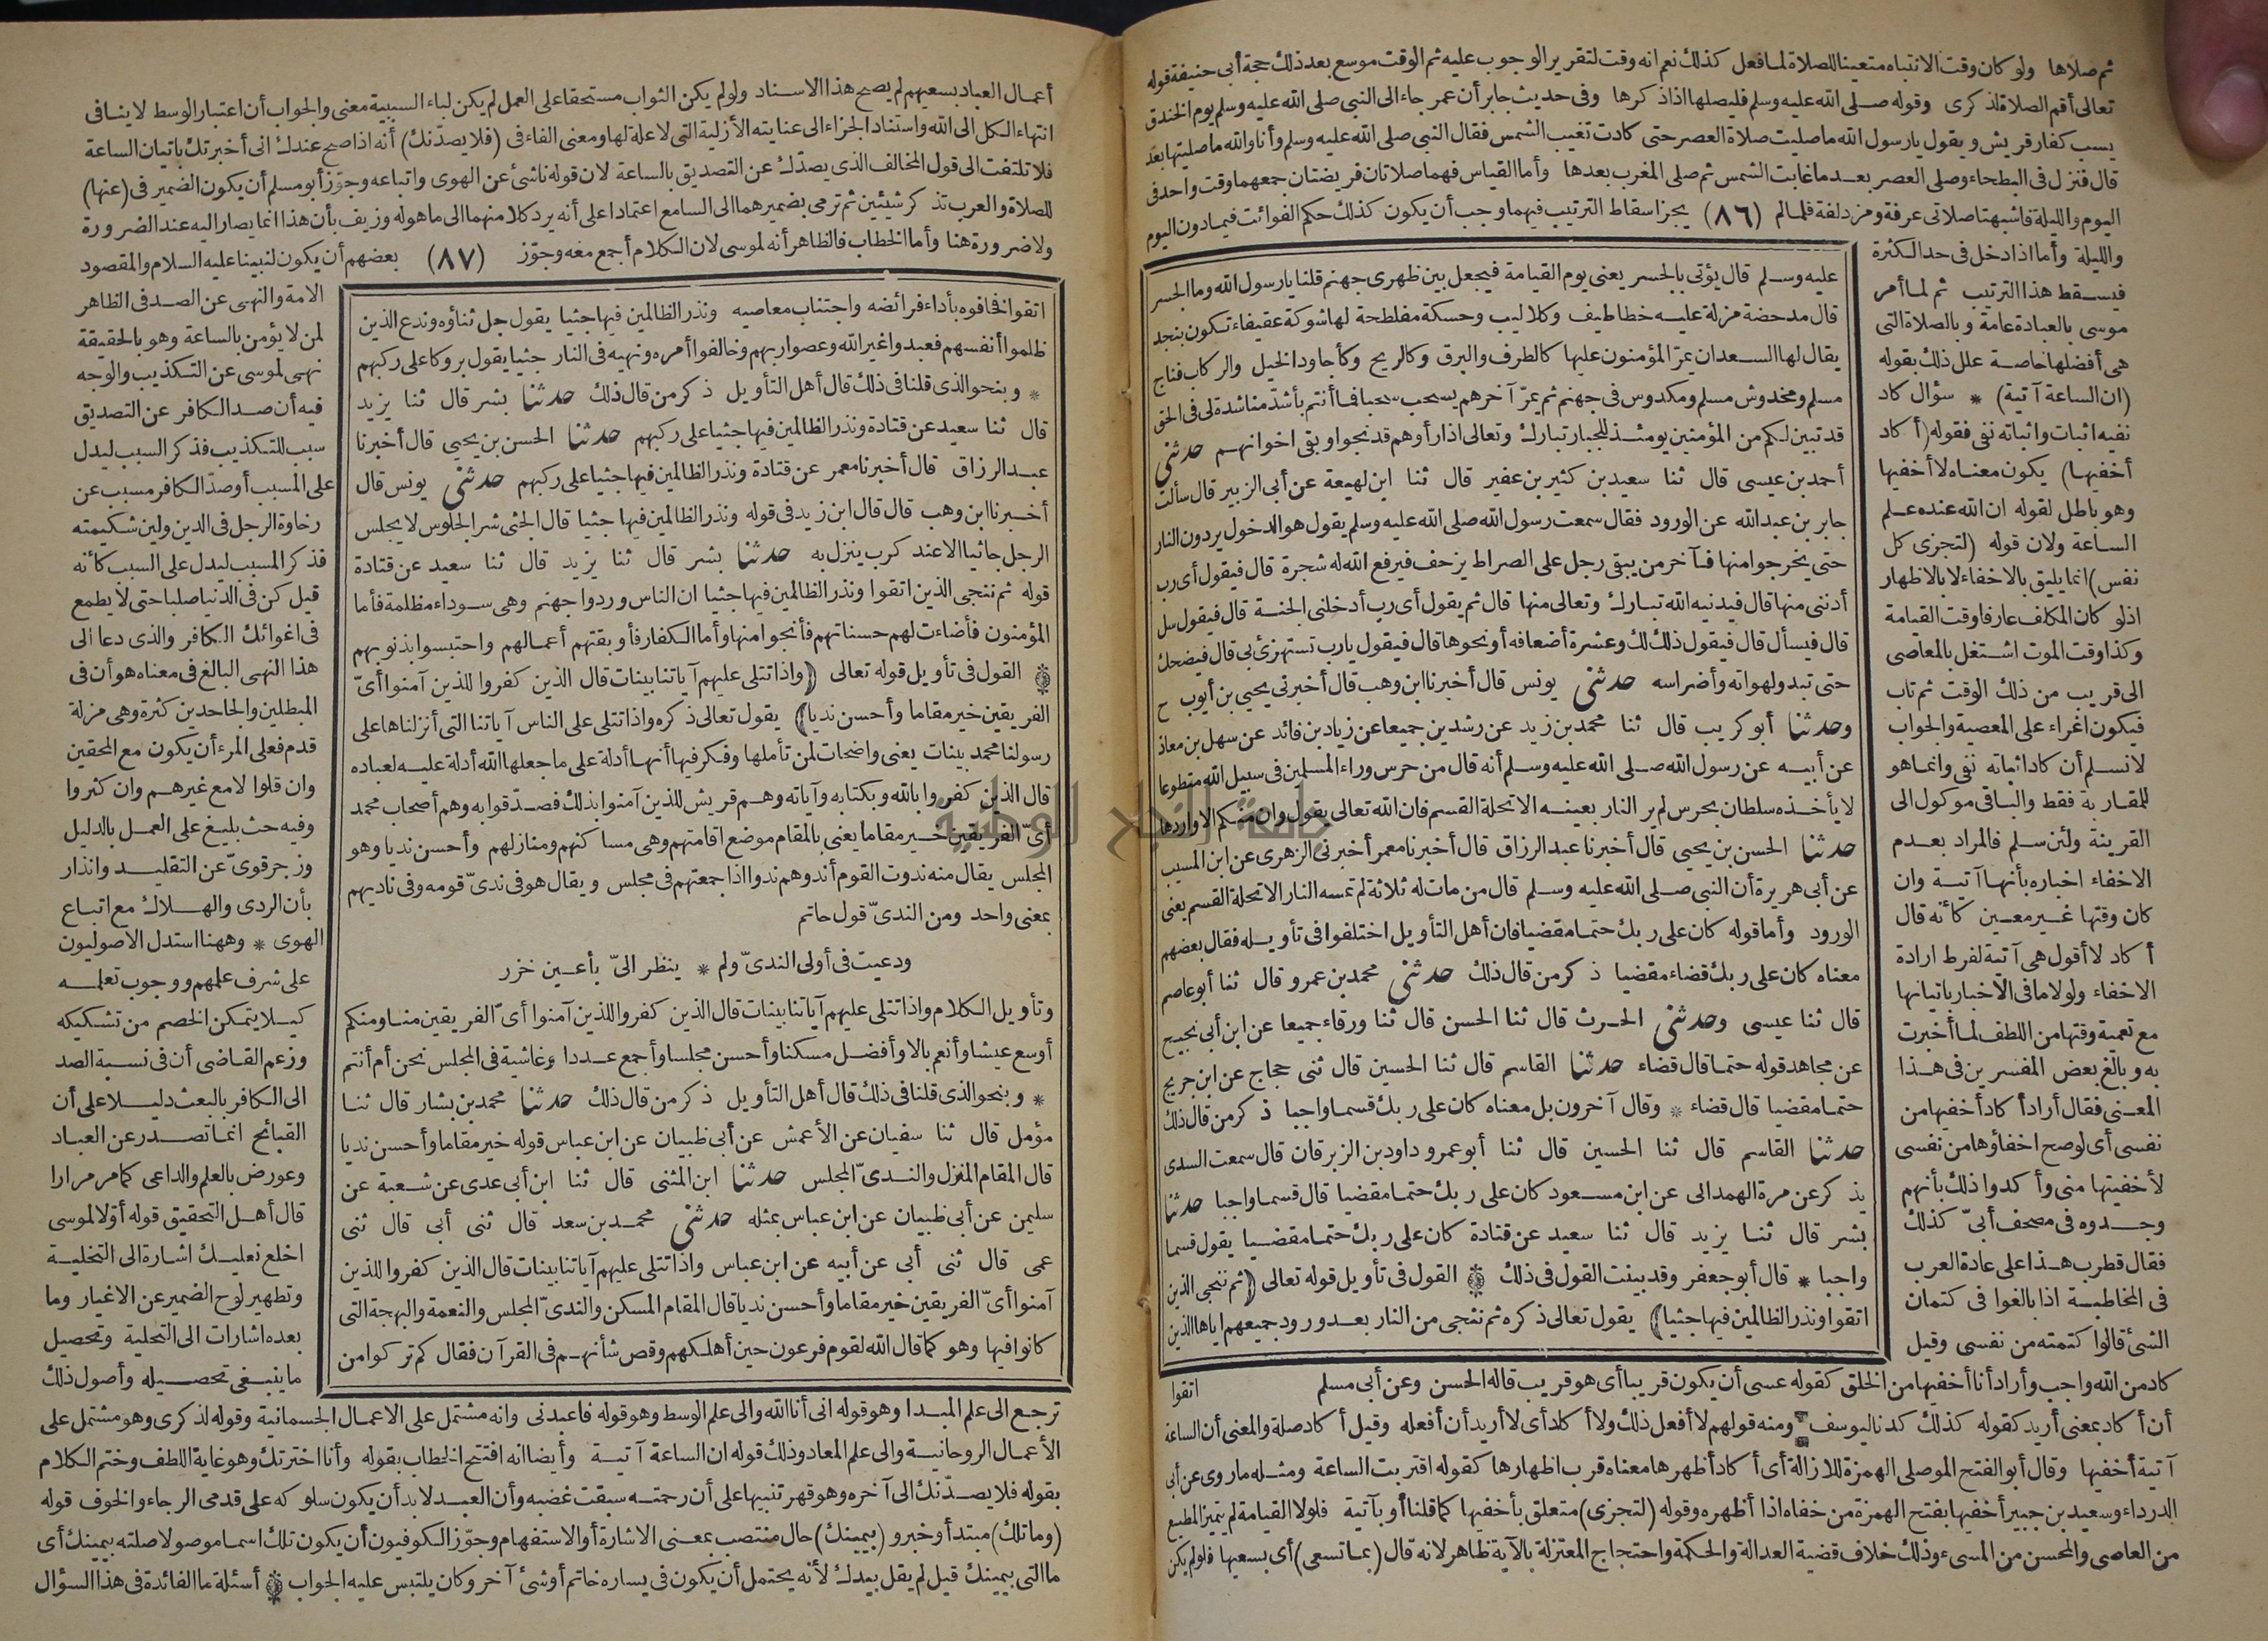 ثم صلاها ولو كان وقت الانتباه متعينا للصلاة لما فعل كذلك نعم انه وقت لتقرير الوجوب عليه ثم الوقت موسع بعد ذلك حجة أبي حنيفة قوله
تعالى أقم الصلاة لذكرى وقوله صلى الله عليه وسلم فليصلها اذا ذكرها وفى حديث جابر أن عمر جاء الى النبي صلى الله عليه وسلم يوم الخندق
يسب كفار قريش ويقول يا رسول الله ما صليت صلاة العصر حتى كادت تغيب الشمس فقال النبي صلى الله عليه وسلم وأنا والله ما صليتها بعد
قال فنزل فى البطحاء وصلى العصر بعد ما غابت الشمس ثم صلى المغرب بعدها وأما القياس فهما صلاتان فريضتان جمعهما وقت واحد فى
اليوم والليلة فاشبهتا صلاتى عرفة ومزدلفة فلما لم (٨٦) يجز اسقاط الترتيب فيهما وجب أن يكون كذلك حكم الفوائت فيما دون اليوم
والليلة وأما اذا دخل فى حد الكثرة
فيسقط هذا الترتيب ثم لما أمر
موسى بالعبادة عامة وبالصلاة التى
هى أفضلها خاصة علل ذلك بقوله
(ان الساعة آتية) * سؤال كاد
نفيه اثبات واثباته نفى فقوله (أكاد
أخفيها) يكون معناه لا أخفيها
وهو باطل لقوله ان الله عنده علم
الساعة ولان قوله (لتجزى كل
نفس) انما يليق بالاخفاء لا بالاظهار
اذ لو كان المكلف عارفا وقت القيامة
وكذا وقت الموت اشتغل بالمعاصى
الى قريب من ذلك الوقت ثم تاب
فيكون اغراء على المعصية والجواب
لا نسلم أن كاد اثباته نفى وانما هو
للمقاربة فقط والباقى موكول الى
القرينة ولئن سلم فالمراد بعدم
الاخفاء اخباره بأنها آتية وان
كان وقتها غير معين كأنه قال
أكاد لا أقول هى آتية لفرط ارادة
الاخفاء ولولا ما فى الاخبار باتيانها
مع تعمية وقتها من اللطف لما أخبرت
به وبالغ بعض المفسرين فى هذا
المعنى فقال أراد أكاد أخفيها من
نفسى أى لو صح اخفاؤها من نفسى
لأخفيتها منى وأكدوا ذلك بأنهم
وجدوه فى مصحف أبىّ كذلك
فقال قطرب هذا على عادة العرب
فى المخاطبة اذا بالغوا فى كتمان
الشئ قالوا كتمته من نفسى وقيل
عليه وسلم قال يؤتى بالجسر يعنى يوم القيامة فيجعل بين ظهرى جهنم قلنا يا رسول الله وما الجسر
قال مدحضة مزلة عليه خطاطيف وكلاليب وحسكة مفلطحة لها شوكة عقيفاء تكون بنجد
يقال لها السعدان يمرّ المؤمنون عليها كالطرف والبرق وكالريح وكأجاود الخيل والركاب فناج
مسلم ومخدوش مسلم ومكدوس فى جهنم ثم يمرّ آخرهم يسحب سحبا فما أنتم بأشدّ مناشدة لى فى الحق
قد تبين لكم من المؤمنين يومئذ للجبار تبارك وتعالى اذا رأوهم قد نجوا وبقى اخوانهم حدثنى
أحمد بن عيسى قال ثنا سعيد بن كثير بن عفير قال ثنا ابن لهيعة عن أبى الزبير قال سألت
جابر بن عبد الله عن الورود فقال سمعت رسول الله صلى الله عليه وسلم يقول هو الدخول يردون النار
حتى يخرجوا منها فآخر من يبقى رجل على الصراط يزحف فيرفع الله له شجرة قال فيقول أى رب
أدننى منها قال فيدنيه الله تبارك وتعالى منها قال ثم يقول أى رب أدخلنى الجنة قال فيقول سل
قال فيسأل قال فيقول ذلك لك وعشرة أضعافه أو نحوها قال فيقول يا رب تستهزئ بى قال فيضحك
حتى تبدو لهواته وأضراسه حدثنى يونس قال أخبرنا ابن وهب قال أخبرنى يحيى بن أيوب ح
وحدثنا أبو كريب قال ثنا محمد بن زيد عن رشدين جميعا عن زياد بن فائد عن سهل بن معاذ
عن أبيه عن رسول الله صلى الله عليه وسلم أنه قال من حرس وراء المسلمين فى سبيل الله متطوعا
لا يأخذه سلطان بحرس لم ير النار بعينه الا تحلة القسم فان الله تعالى يقول وان منكم الا واردها
حدثنا الحسن بن يحيى قال أخبرنا عبد الرزاق قال أخبرنا معمر أخبرنى الزهرى عن ابن المسيب
عن أبى هريرة أن النبي صلى الله عليه وسلم قال من مات له ثلاثة لم تمسه النار الا تحلة القسم يعنى
الورود وأما قوله كان على ربك حتما مقضيا فان أهل التأويل اختلفوا فى تأويله فقال بعضهم
معناه كان على ربك قضاء مقضيا ذكر من قال ذلك حدثنى محمد بن عمرو قال ثنا أبو عاصم
قال ثنا عيسى وحدثنى الحرث قال ثنا الحسن قال ثنا ورقاء جميعا عن ابن أبى نجيح
عن مجاهد قوله حتما قال قضاء حدثنا القاسم قال ثنا الحسين قال ثنى حجاج عن ابن جريج
حتما مقضيا قال قضاء * وقال آخرون بل معناه كان على ربك قسما واجبا ذكر من قال ذلك
حدثنا القاسم قال ثنا الحسين قال ثنا أبو عمرو داود بن الزبرقان قال سمعت السدى
يذكر عن مرة الهمدانى عن ابن مسعود كان على ربك حتما مقضيا قال قسما واجبا حدثنا
بشر قال ثنا يزيد قال ثنا سعيد عن قتادة كان على ربك حتما مقضيا يقول قسما
واجبا * قال أبو جعفر وقد بينت القول فى ذلك ۞ القول فى تأويل قوله تعالى (ثم ننجى الذين
اتقوا ونذر الظالمين فيها جثيا) يقول تعالى ذكره ثم ننجى من النار بعد ورود جميعهم اياها الذين
كاد من الله واجب وأراد أنا أخفيها من الخلق كقوله عسى أن يكون قريبا أى هو قريب قاله الحسن وعن أبى مسلم اتقوا
أن أكاد بمعنى أريد كقوله كذلك كدنا ليوسف ومنه قولهم لا أفعل ذلك ولا أكاد أى لا أريد أن أفعله وقيل أكاد صلة والمعنى أن الساعة
آتية أخفيها وقال أبو الفتح الموصلى الهمزة للازالة أى أكاد أظهرها معناه قرب اظهارها كقوله اقتربت الساعة ومثله ما روى عن أبى
الدرداء وسعيد بن جبير أخفيها بفتح الهمزة من خفاه اذا أظهره وقوله (لتجزى) متعلق بأخفيها كما قلنا أو بآتية فلولا القيامة لم يتميز المطيع
من العاصى والمحسن من المسىء وذلك خلاف قضية العدالة والحكمة واحتجاج المعتزلة بالآية ظاهر لانه قال (بما تسعى) أى بسعيها فلو لم يكن
أعمال العباد بسعيهم لم يصح هذا الاسناد ولو لم يكن الثواب مستحقا على العمل لم يكن لباء السببية معنى والجواب أن اعتبار الوسط لا ينافى
انتهاء الكل الى الله واستناد الجزاء الى عنايته الأزلية التى لا علة لها ومعنى الفاء فى (فلا يصدّنك) أنه اذا صح عندك انى أخبرتك باتيان الساعة
فلا تلتفت الى قول المخالف الذى يصدّك عن التصديق بالساعة لان قوله ناشئ عن الهوى واتباعه وجوّز أبو مسلم أن يكون الضمير فى (عنها)
للصلاة والعرب تذكر شيئين ثم ترمى بضميرهما الى السامع اعتمادا على أنه يرد كلا منهما الى ما هو له وزيف بأن هذا انما يصار اليه عند الضرورة
ولا ضرورة هنا وأما الخطاب فالظاهر أنه لموسى لان الكلام أجمع معه وجوّز (٨٧) بعضهم أن يكون لنبينا عليه السلام والمقصود
اتقوا فخافوه بأداء فرائضه واجتناب معاصيه ونذر الظالمين فيها جثيا يقول جل ثناؤه وندع الذين
ظلموا أنفسهم فعبدوا غير الله وعصوا ربهم وخالفوا أمره ونهيه فى النار جثيا يقول بروكا على ركبهم
* وبنحو الذى قلنا فى ذلك قال أهل التأويل ذكر من قال ذلك حدثنا بشر قال ثنا يزيد
قال ثنا سعيد عن قتادة ونذر الظالمين فيها جثيا على ركبهم حدثنا الحسن بن يحيى قال أخبرنا
عبد الرزاق قال أخبرنا معمر عن قتادة ونذر الظالمين فيها جثيا على ركبهم حدثنى يونس قال
أخبرنا ابن وهب قال قال ابن زيد فى قوله ونذر الظالمين فيها جثيا قال الجثى شر الجلوس لا يجلس
الرجل جاثيا الا عند كرب ينزل به حدثنا بشر قال ثنا يزيد قال ثنا سعيد عن قتادة
قوله ثم ننجى الذين اتقوا ونذر الظالمين فيها جثيا ان الناس وردوا جهنم وهى سوداء مظلمة فأما
المؤمنون فأضاءت لهم حسناتهم فأنجوا منها وأما الكفار فأوبقتهم أعمالهم واحتبسوا بذنوبهم
۞ القول فى تأويل قوله تعالى (واذا تتلى عليهم آياتنا بينات قال الذين كفروا للذين آمنوا أىّ
الفريقين خير مقاما وأحسن نديا) يقول تعالى ذكره واذا تتلى على الناس آياتنا التى أنزلناها على
رسولنا محمد بينات يعنى واضحات لمن تأملها وفكر فيها أنها أدلة على ما جعلها الله أدلة عليه لعباده
قال الذين كفروا بالله وبكتابه وآياته وهم قريش للذين آمنوا بذلك فصدّقوا به وهم أصحاب محمد
أىّ الفريقين خير مقاما يعنى بالمقام موضع اقامتهم وهى مساكنهم ومنازلهم وأحسن نديا وهو
المجلس يقال منه ندوت القوم أندوهم ندوا اذا جمعتهم فى مجلس ويقال هو فى ندىّ قومه وفى ناديهم
بمعنى واحد ومن الندىّ قول حاتم
ودعيت فى أولى الندىّ ولم * ينظر الىّ بأعين خزر
وتأويل الكلام واذا تتلى عليهم آياتنا بينات قال الذين كفروا للذين آمنوا أىّ الفريقين منا ومنكم
أوسع عيشا وأنعم بالا وأفضل مسكنا وأحسن مجلسا وأجمع عددا وغاشية فى المجلس نحن أم أنتم
* وبنحو الذى قلنا فى ذلك قال أهل التأويل ذكر من قال ذلك حدثنا محمد بن بشار قال ثنا
مؤمل قال ثنا سفيان عن الأعمش عن أبى ظبيان عن ابن عباس قوله خير مقاما وأحسن نديا
قال المقام المنزل والندىّ المجلس حدثنا ابن المثنى قال ثنا ابن أبى عدى عن شعبة عن
سليمن عن أبى ظبيان عن ابن عباس بمثله حدثنى محمد بن سعد قال ثنى أبى قال ثنى
عمى قال ثنى أبى عن أبيه عن ابن عباس واذا تتلى عليهم آياتنا بينات قال الذين كفروا للذين
آمنوا أىّ الفريقين خير مقاما وأحسن نديا قال المقام المسكن والندىّ المجلس والنعمة والبهجة التى
كانوا فيها وهو كما قال الله لقوم فرعون حين أهلكهم وقص شأنهم فى القرآن فقال كم تركوا من
الامة والنهى عن الصد فى الظاهر
لمن لا يؤمن بالساعة وهو بالحقيقة
نهى لموسى عن التكذيب والوجه
فيه أن صد الكافر عن التصديق
سبب للتكذيب فذكر السبب ليدل
على المسبب أو صدّ الكافر مسبب عن
رخاوة الرجل فى الدين ولين شكيمته
فذكر المسبب ليدل على السبب كأنه
قيل كن فى الدنيا صلبا حتى لا يطمع
فى اغوائك الكافر والذى دعا الى
هذا النهى البالغ فى معناه هو أن فى
المبطلين والجاحدين كثرة وهى مزلة
قدم فعلى المرء أن يكون مع المحقين
وان قلوا لا مع غيرهم وان كثروا
وفيه حث بليغ على العمل بالدليل
وزجر قوىّ عن التقليد وانذار
بأن الردى والهلاك مع اتباع
الهوى * وههنا استدل الاصوليون
على شرف علمهم ووجوب تعلمه
كيلا يتمكن الخصم من تشكيكه
وزعم القاضى أن فى نسبة الصد
الى الكافر بالبعث دليلا على أن
القبائح انما تصدر عن العباد
وعورض بالعلم والداعى كما مر مرارا
قال أهل التحقيق قوله أوّلا لموسى
اخلع نعليك اشارة الى التخلية
وتطهير لوح الضمير عن الاغيار وما
بعده اشارات الى التحلية وتحصيل
ما ينبغى تحصيله وأصول ذلك
ترجع الى علم المبدا وهو قوله انى أنا الله والى علم الوسط وهو قوله فاعبدنى وانه مشتمل على الاعمال الجسمانية وقوله لذكرى وهو مشتمل على
الأعمال الروحانية والى علم المعاد وذلك قوله ان الساعة آتية وأيضا انه افتتح الخطاب بقوله وأنا اخترتك وهو غاية اللطف وختم الكلام
بقوله فلا يصدّنك الى آخره وهو قهر تنبيها على أن رحمته سبقت غضبه وأن العبد لا بد أن يكون سلوكه على قدمى الرجاء والخوف قوله
(وما تلك) مبتدأ وخبر و(بيمينك) حال منتصب بمعنى الاشارة أو الاستفهام وجوّز الكوفيون أن يكون تلك اسما موصولا صلته بيمينك أى
ما التى بيمينك قيل لم يقل بيدك لأنه يحتمل أن يكون فى يساره خاتم أو شئ آخر وكان يلتبس عليه الجواب ۞ أسئلة ما الفائدة فى هذا السؤال
جامعة النجاح الوطنية